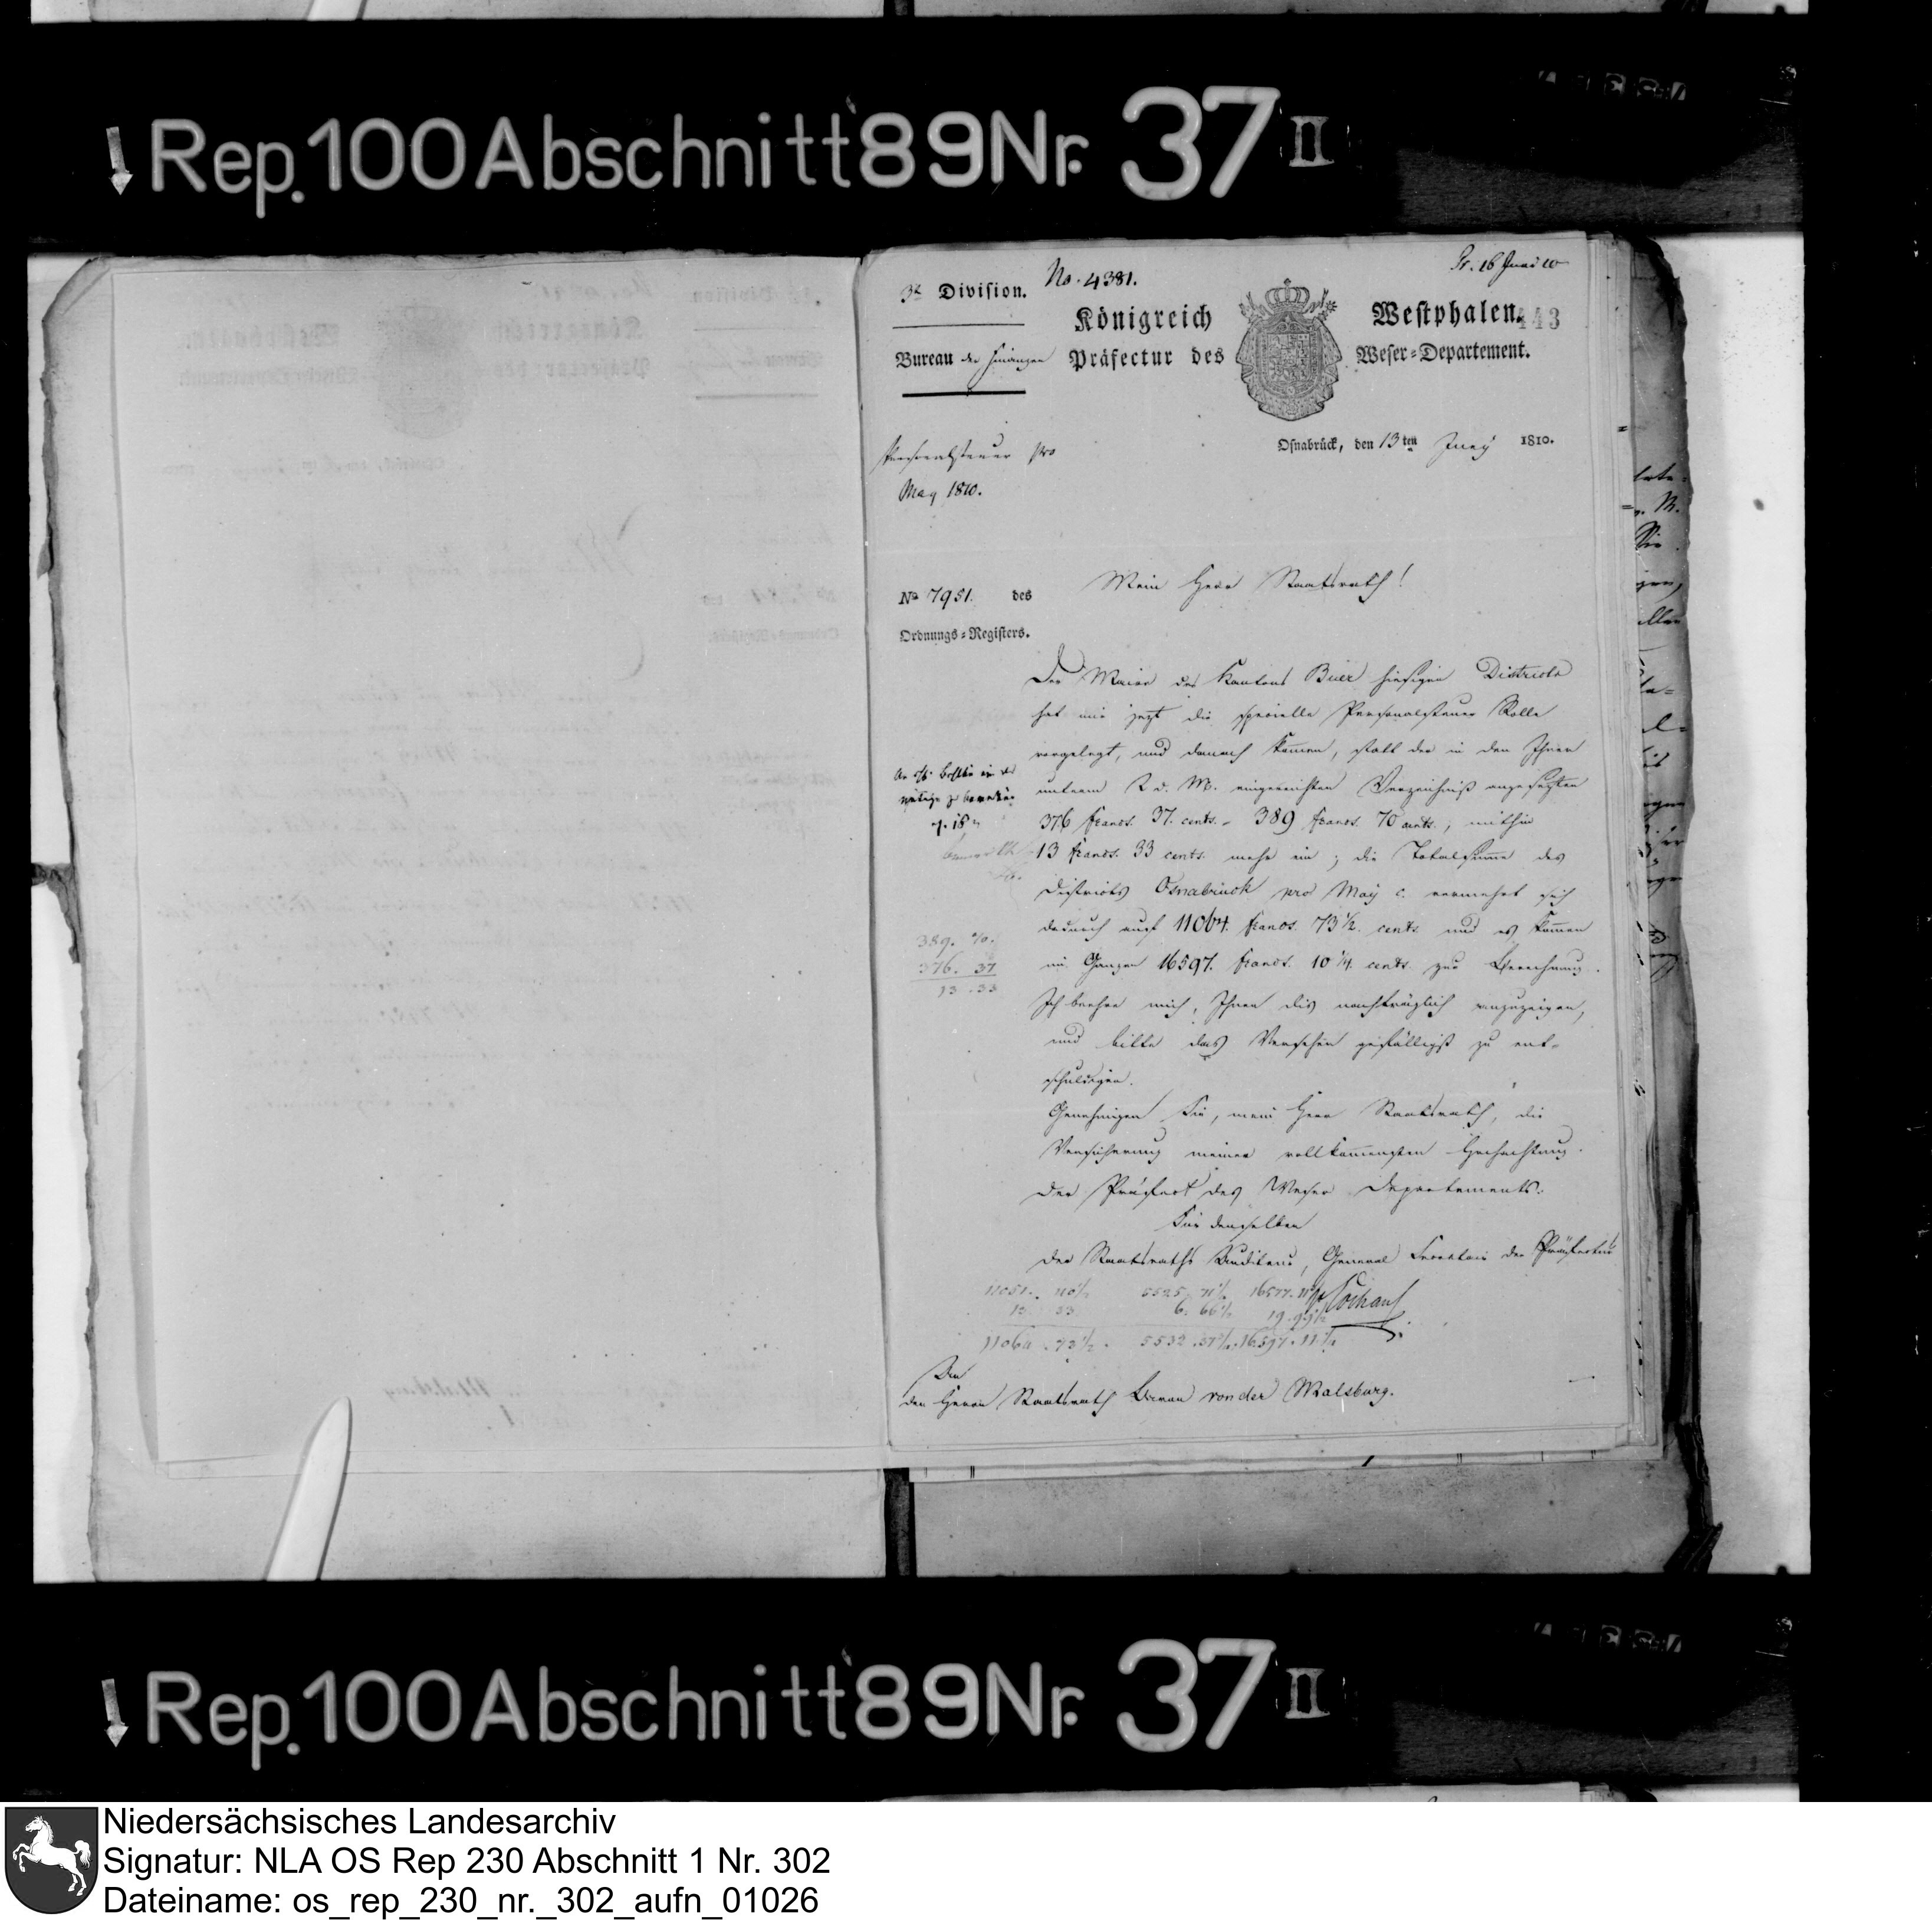 Rep. 100 Abschnitt 89 Nr. 37 II
No. 4381.
Pr. 16 Juni 10
3te Division.
Königreich Westphalen.
443
Bureau der Finanzen
Präfectur des Weser-Departement.
Osnabrück, den 13ten Juny 1810.
Personalsteuer pro
May 1810.
Mein Herr Staatsrath!
No 7951. des
Ordnungs-Registers.
Der Maire des Kantons Buer hiesigen Districts
hat mir jezt die specielle Personalsteuer Rolle
vorgelegt, und danach kommen, statt der in den Ihnen
unterm 2 d. M. eingereichten Verzeichniß angesezten
376 francs. 37. cents. - 389 francs. 70 cents., mithin
13 francs. 33 cents. mehr ein; die Totalsumme des
Districts Osnabrück pro May c. vermehrt sich
dadurch auf 11064. francs. 73½. cents. und es kommen
im Ganzen 16597. francs. 10¼. cents. zur Berechnung.
Ich beehre mich, Ihnen dis nachträglich anzuzeigen,
und bitte das Versehen gefälligst zu ent-
schuldigen.
Genehmigen Sie, mein Herr Staatsrath, die
Versicherung meiner vollkommensten Hochachtung.
Der Präfect des Weser Departements.
Für denselben
Der Staatsraths Auditeur, General Secretair der Präfectur
389. 70.
376. 37
13. 33
11051. 40½ 5525. 71 16577. 11
13 33 6. 66½ 19. 99½
11064. 73½. 5532. 37 16597. 11
An
den Herrn Staatsrath Baron von der Malsburg.
Rep. 100 Abschnitt 89 Nr. 37 II
Niedersächsisches Landesarchiv
Signatur: NLA OS Rep 230 Abschnitt 1 Nr. 302
Dateiname: os_rep_230_nr._302_aufn_01026